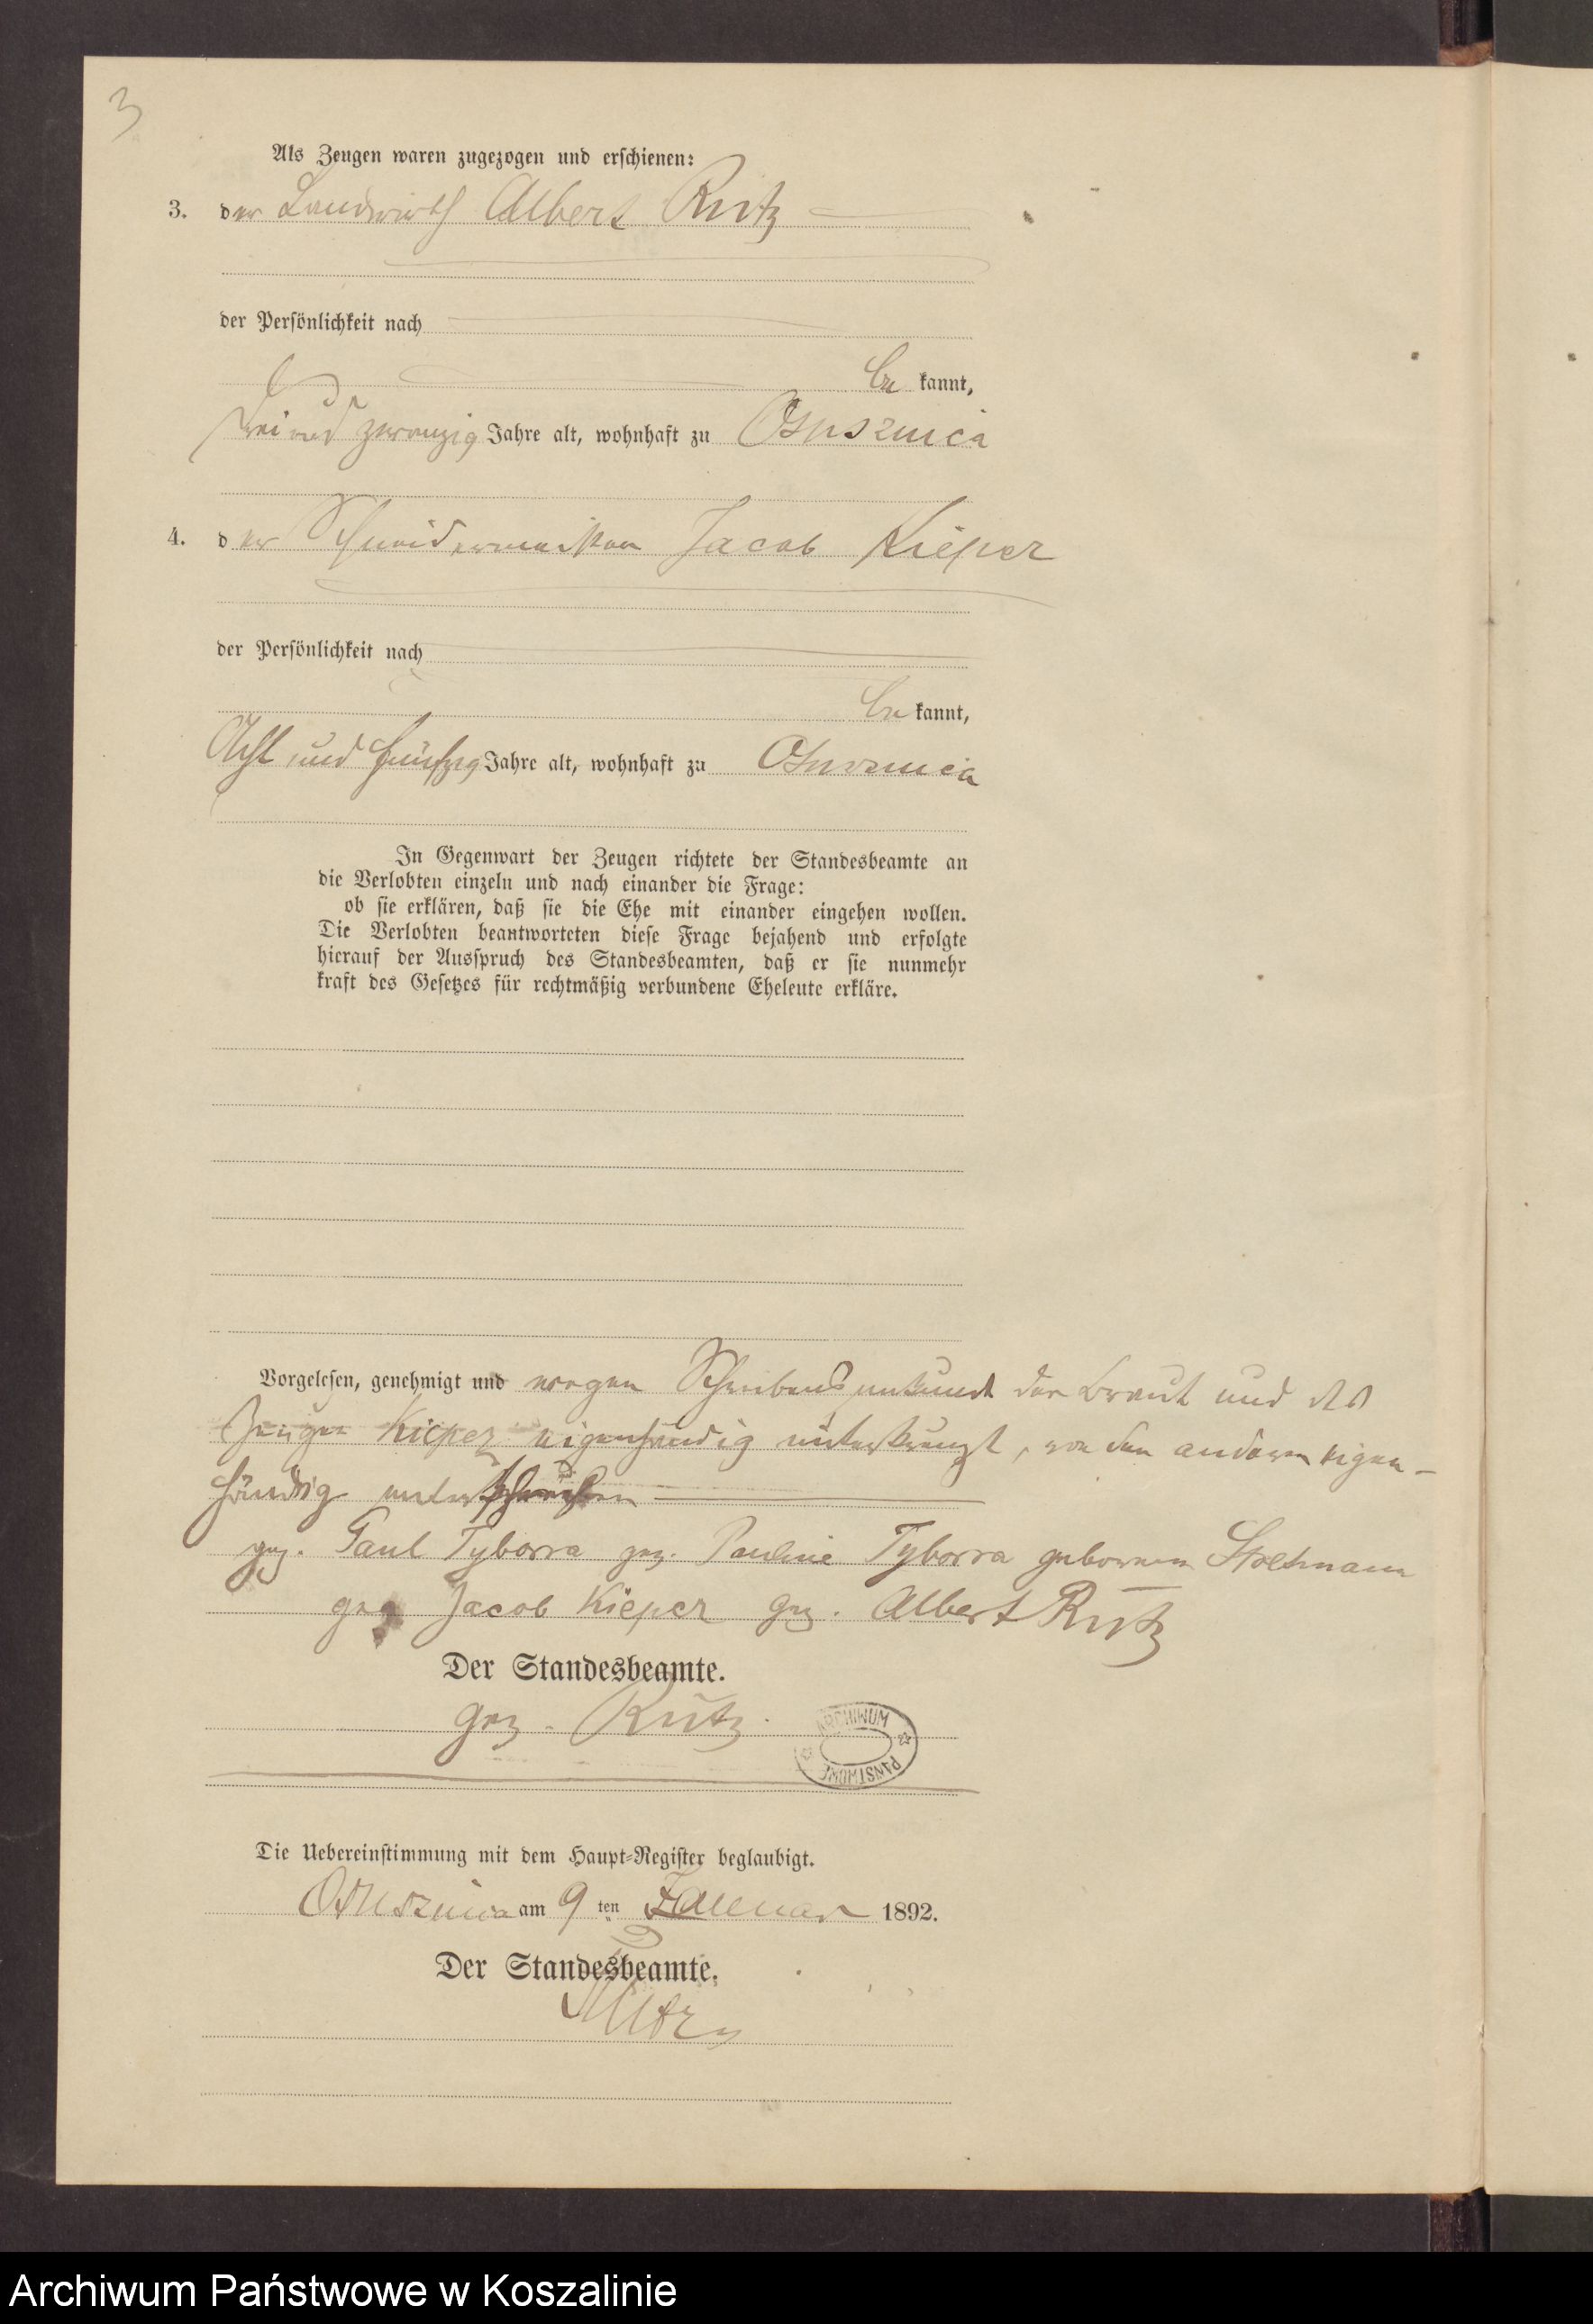 3
Als Zeugen waren zugezogen und erschienen:
3. der Landwirth Albert Rutz
der Persönlichkeit nach
be kannt,
und zwanzig Jahre alt, wohnhaft zu Osusznica
4. der Schneidermeister Jacob Kieper
der Persönlichkeit nach
be kannt,
Acht und fünfzig Jahre alt, wohnhaft zu Osusznica
In Gegenwart der Zeugen richtete der Standesbeamte an
die Verlobten einzeln und nach einander die Frage:
ob sie erklären, daß sie die Ehe mit einander eingehen wollen.
Die Verlobten beantworteten diese Frage bejahend und erfolgte
hierauf der Ausspruch des Standesbeamten, daß er sie nunmehr
kraft des Gesetzes für rechtmäßig verbundene Eheleute erkläre.
Vorgelesen, genehmigt und wegen Schreibensunkunde der Braut und des
Zeugen Kieper eigenhändig unterkreuzt, von den anderen eigen-
händig unterschrieben
gez. Paul Tyborra gez. Pauline Tyborra geborene
gez. Jacob Kieper gez. Albert Rutz
Der Standesbeamte.
gez. Rutz.
ARCHIWUM PAŃSTWOWE
Die Uebereinstimmung mit dem Haupt-Register beglaubigt.
Osusznica am 9 ten Januar 1892.
Der Standesbeamte.
Rutz
Archiwum Państwowe w Koszalinie